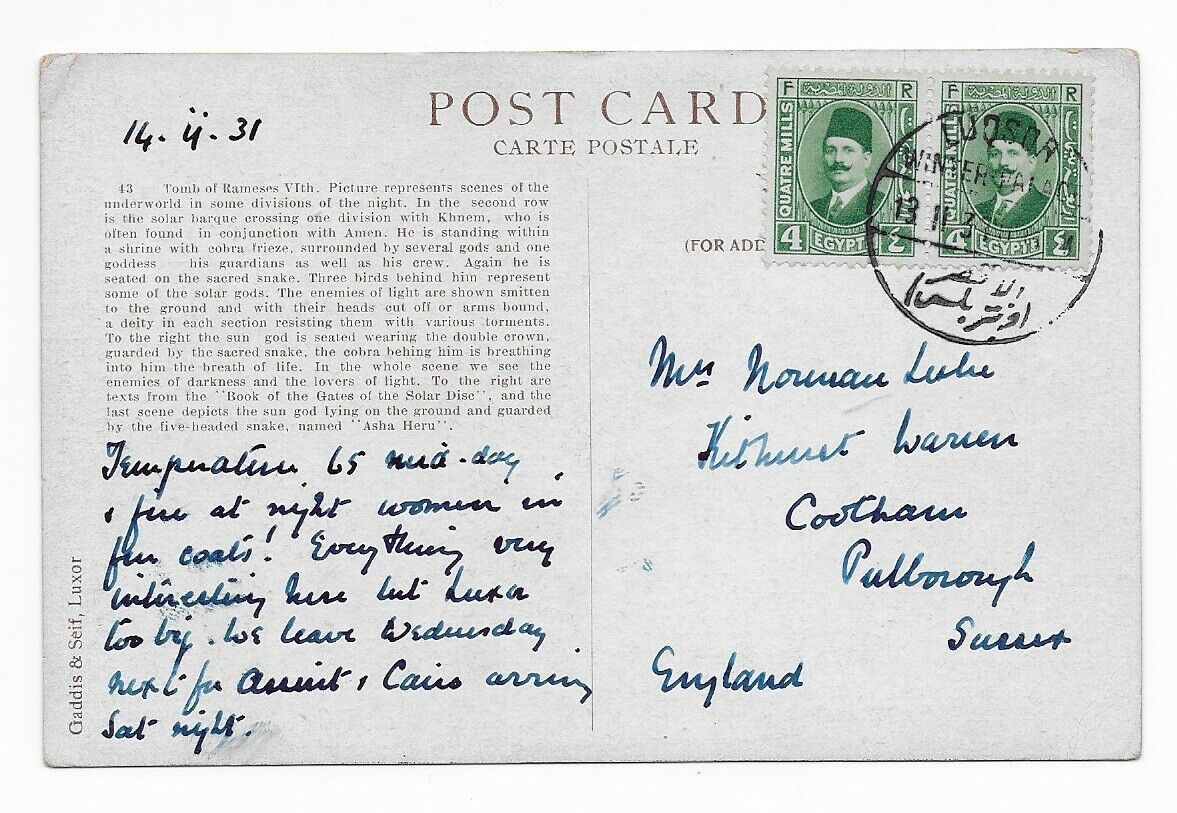 14·ii·31
POST CARD
CARTE POSTALE
43 Tomb of Rameses VIth. Picture represents scenes of the
underworld in some divisions of the night. In the second row
is the solar barque crossing one division with Khnem, who is
often found in conjunction with Amen. He is standing within
a shrine with cobra frieze, surrounded by several gods and one
goddess — his guardians as well as his crew. Again he is
seated on the sacred snake. Three birds behind him represent
some of the solar gods. The enemies of light are shown smitten
to the ground and with their heads cut off or arms bound,
a deity in each section resisting them with various torments.
To the right the sun god is seated wearing the double crown,
guarded by the sacred snake, the cobra behing him is breathing
into him the breath of life. In the whole scene we see the
enemies of darkness and the lovers of light. To the right are
texts from the "Book of the Gates of the Solar Disc", and the
last scene depicts the sun god lying on the ground and guarded
by the five-headed snake, named "Asha Heru".
Temperature 65 mid-day
& fire at night women in
fur coats! Everything very
interesting here but Luxor
too big. We leave Wednesday
next for Assiut & Cairo arriving
Sat night.
Gaddis & Seif, Luxor
(FOR ADD
F R
الدولة المصرية
QUATRE MILLS
4 EGYPT ٤
F R
QUATRE MILLS
4 EGYPTE ٤
LUQSOR
WINTER PALACE
13 II 3
الأقصر
ونتر بلس
Mrs Norman
Kithurst Warren
Cootham
Pulborough
Sussex
England